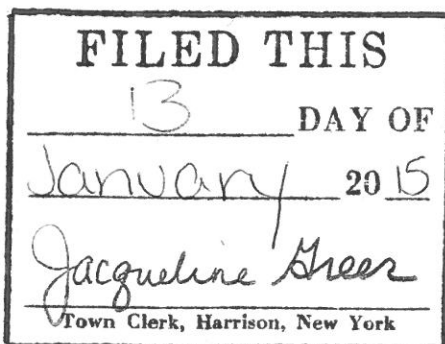 FILED THIS
13 DAY OF
January 20 15
Jacqueline Greer
Town Clerk, Harrison, New York